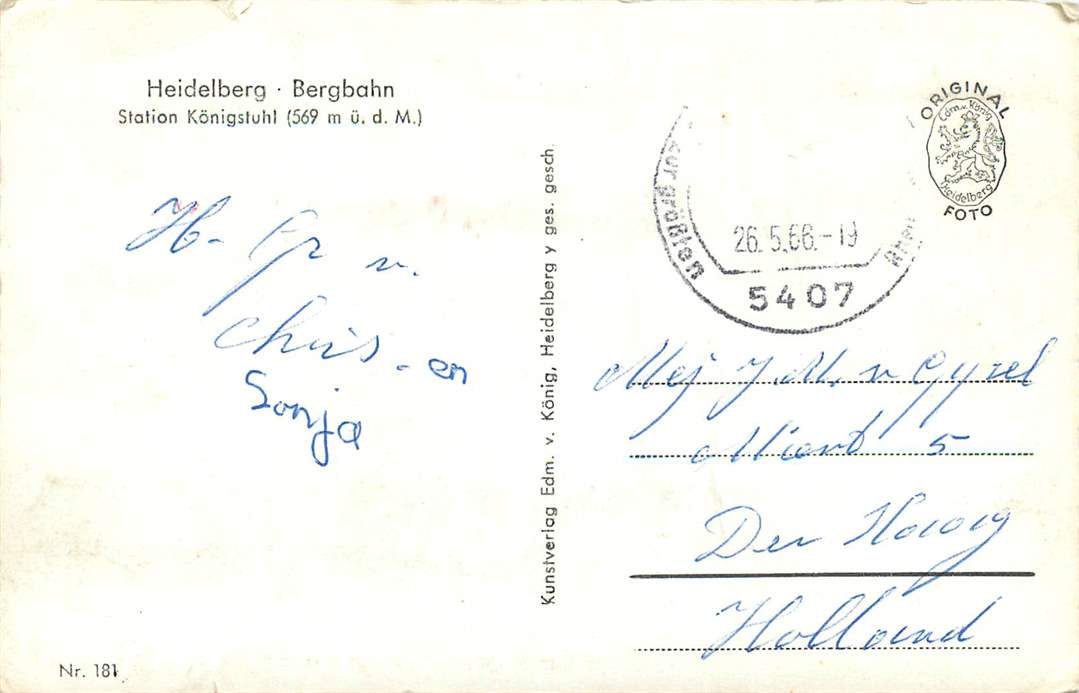 Heidelberg · Bergbahn
Station Königstuhl (569 m ü. d. M.)
H. Gr v.
Chris. en
Sonja
Nr. 181
Kunstverlag Edm. v. König, Heidelberg y ges. gesch.
zur größten
26.5.66.-19
5407
ORIGINAL
Edm. v. König
Heidelberg
FOTO
Mej J. M. v Gyzel
5
Den Haag
Holland